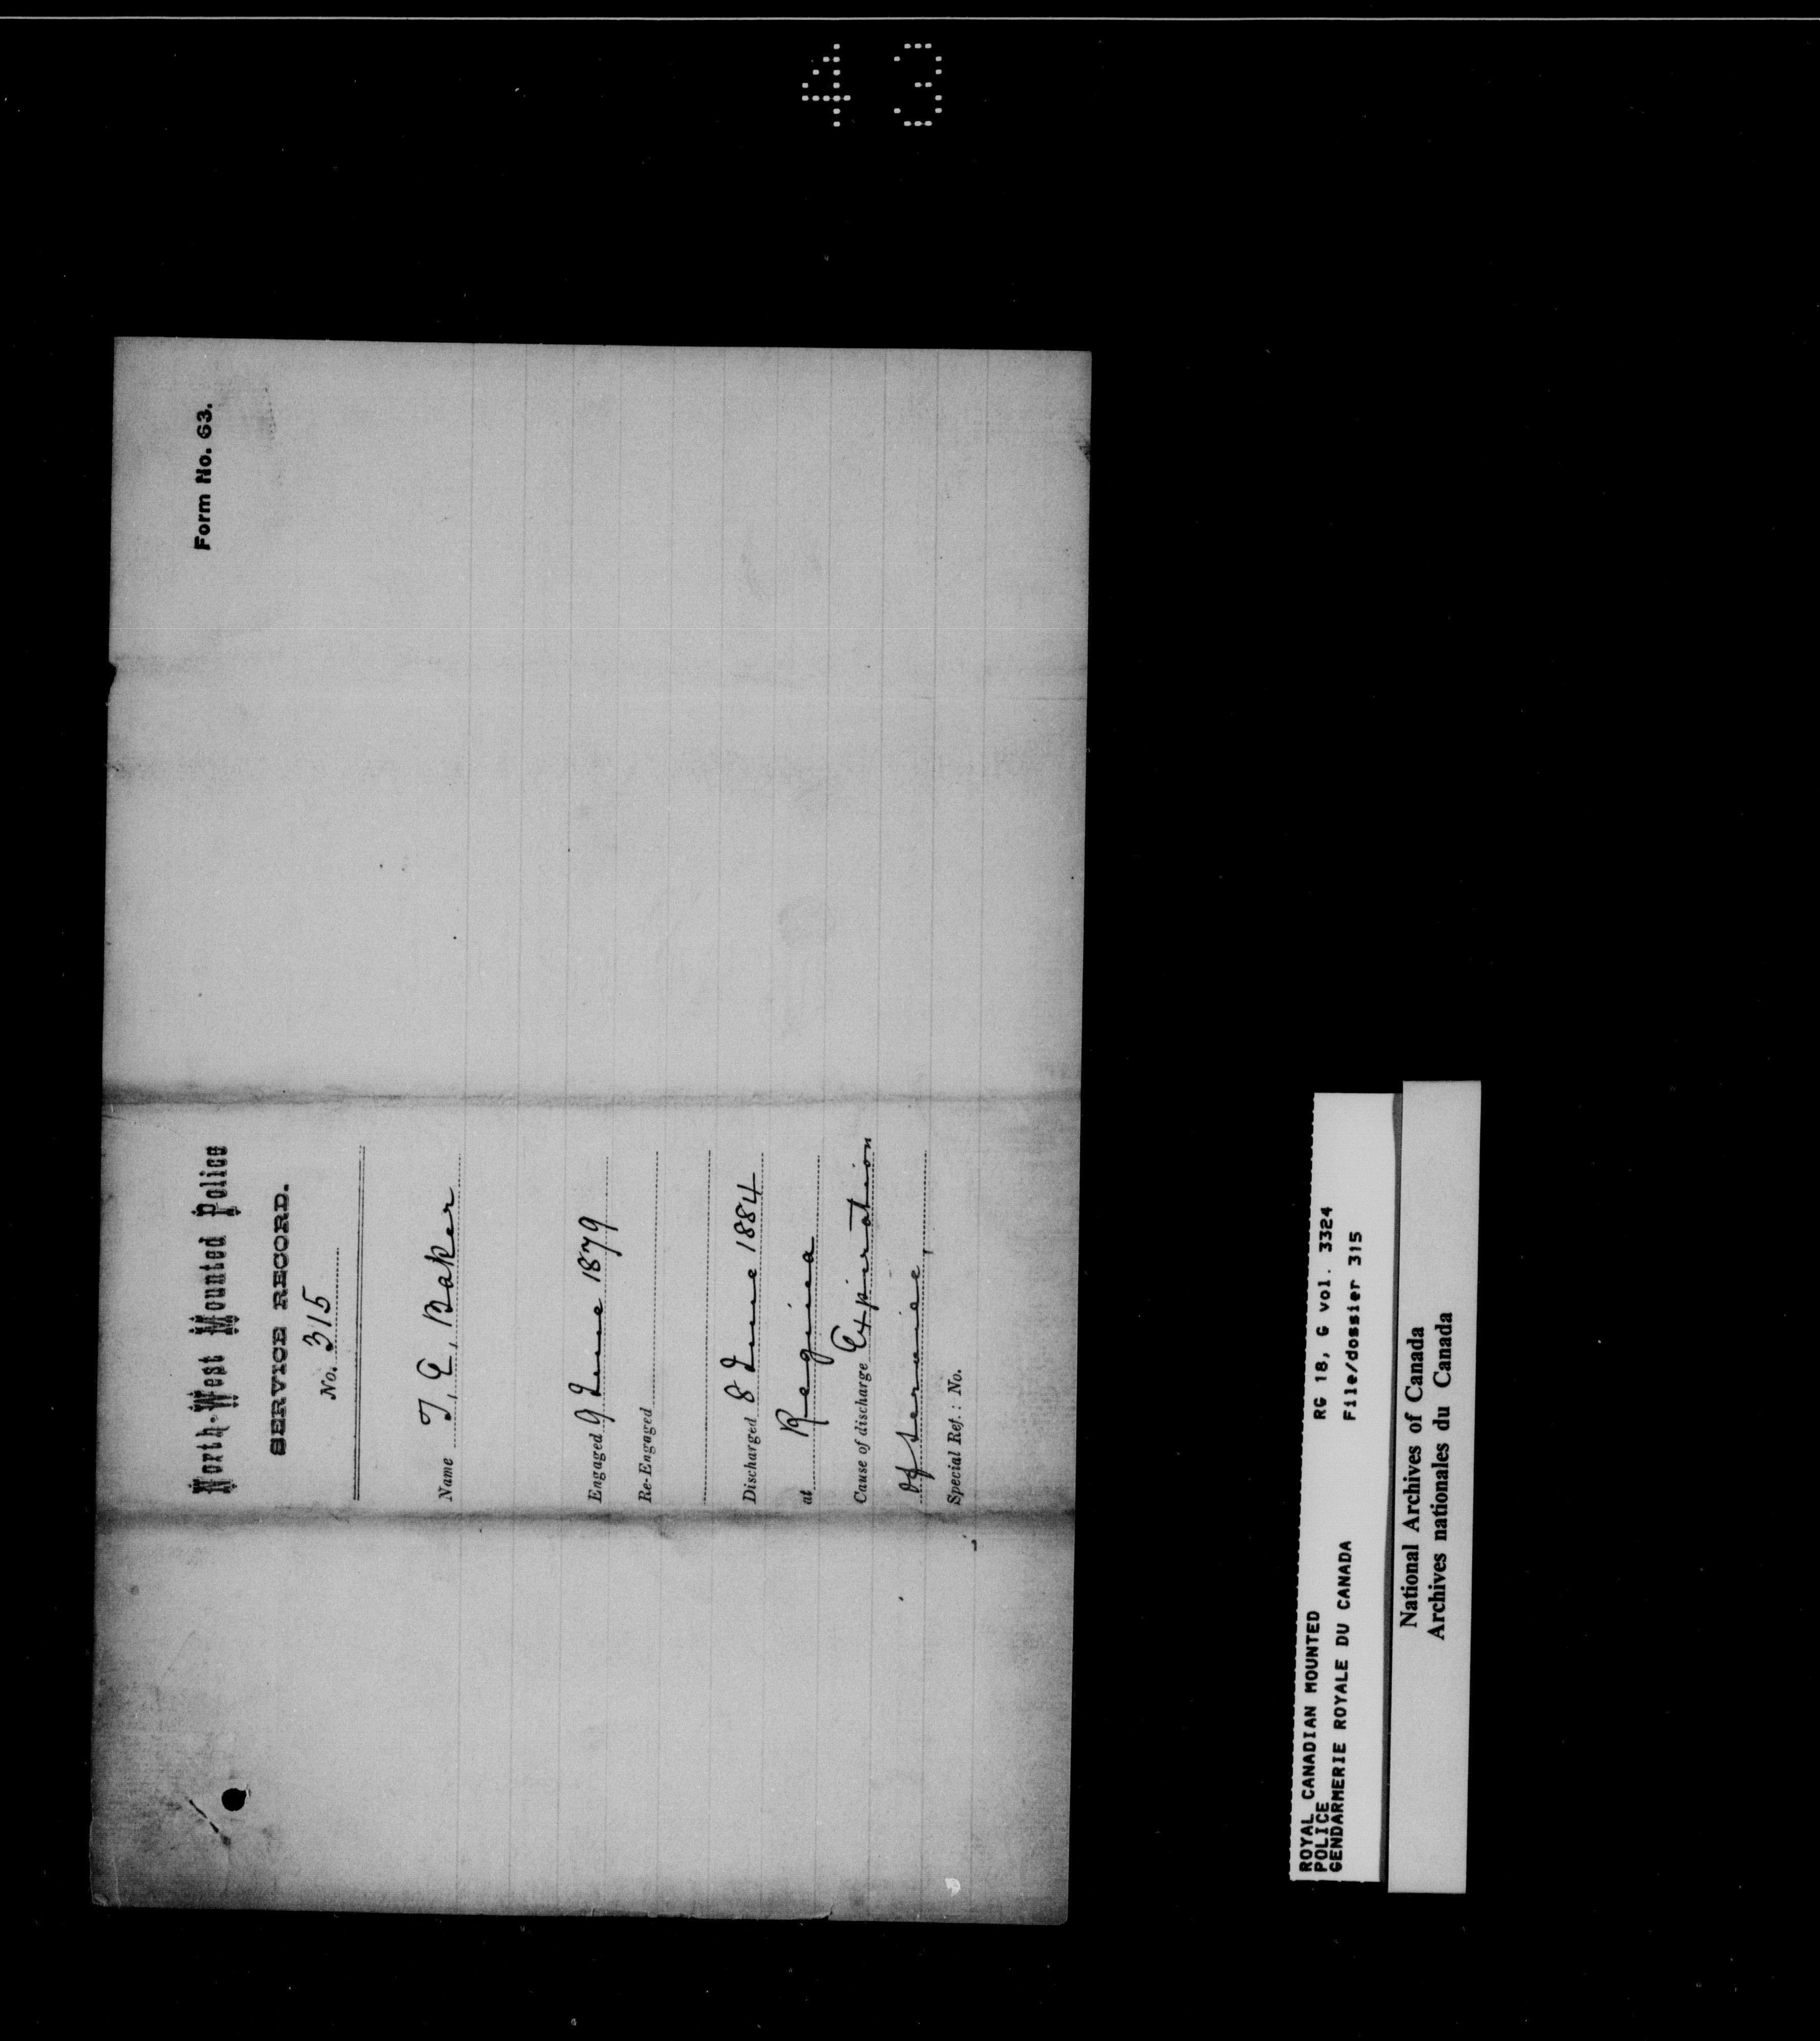 43
Form No. 63.
North-West Mounted Police
SERVICE RECORD.
No. 315
Name T. E. Baker
Engaged 9 June 1879
Re-Engaged
Discharged 8 June 1884
at Regina
Cause of discharge Expiration
of Service,
Special Ref.: No.
ROYAL CANADIAN MOUNTED
POLICE RG 18, G vol. 3324
GENDARMERIE ROYALE DU CANADA File/dossier 315
National Archives of Canada
Archives nationales du Canada